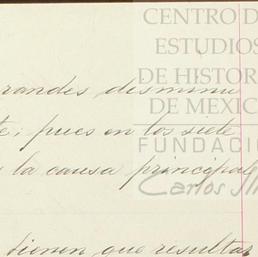 CENTRO D
ESTUDIOS
DE HISTOR
DE MEXIC
FUNDACIÓ
Carlos Sli
randes desminu
te; pues en los siete
la causa principal
tienen que resultar